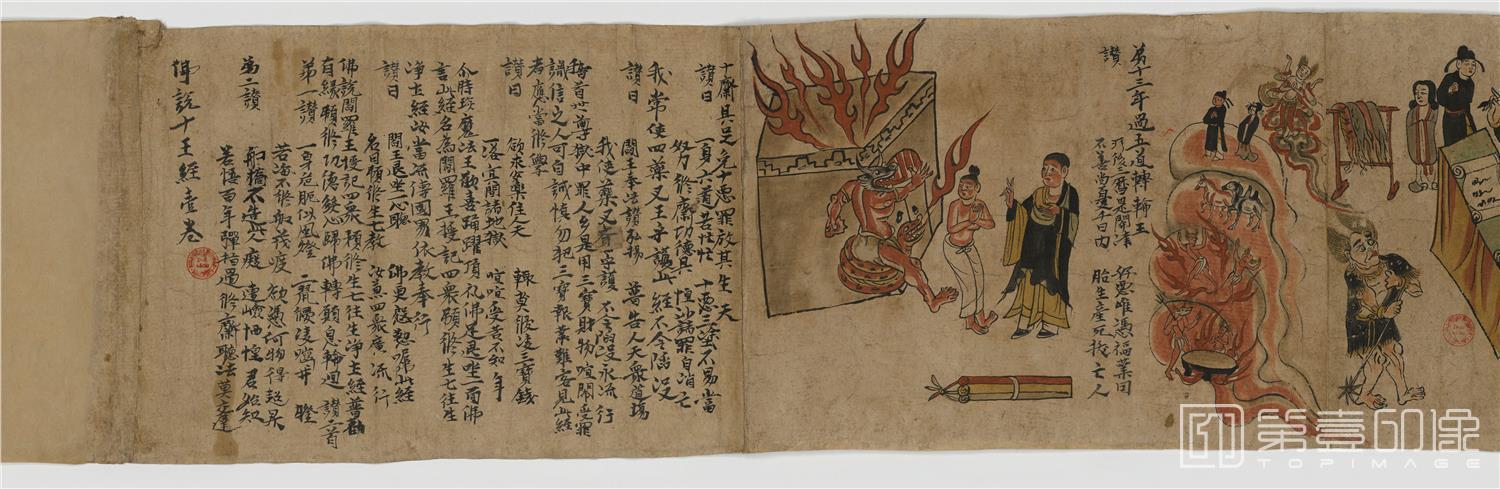 第十三年過五道轉輪王
讚
後三所歷是關津 好惡唯憑福業因
不善尚憂千日內 胎生產死拔亡人
十齋具足免十惡罪放其生天
讚曰
一身六道苦忙忙 十惡三塗不易當
努力修齋功德具 恒沙諸罪自消亡
我常使四藥叉王守護此經不令陷沒
讚曰
閻王奉法讚弘揚 普告人天眾道場
我使藥叉齊守護 不令陷沒永流行
稽首世尊獄中罪人多是用三寶財物喧鬧受罪
識信之人可自誡慎勿犯三寶報業難容見此經
者應當修學
讚曰
欲求安樂住天 輒莫侵凌三寶錢
落冥間諸地獄 喧喧受苦不知年
尒時琰魔法王歡喜踊躍頂礼佛足退坐一面佛
言此經名為閻羅王授記四眾預修生七往生
淨土經汝當流傳國界依教奉行
讚曰
閻王退坐一心聽 佛更慇懃囑此經
名曰預修生七教 汝兼四眾廣流行
佛說閻羅王授記四眾預修生七往生淨土經普勸
有緣預修功德發心歸佛願息輪迴 讚二首
第一讚
一身危脆似風燈 二鼠侵欺齧井
苦海不修船筏渡 欲憑何物得超昇
第二讚
船橋不造此人癡 遭險恓惶君始知
若悟百年彈指過 修齋聽法莫
佛說十王經壹卷
第壹印象
TOPIMAGE